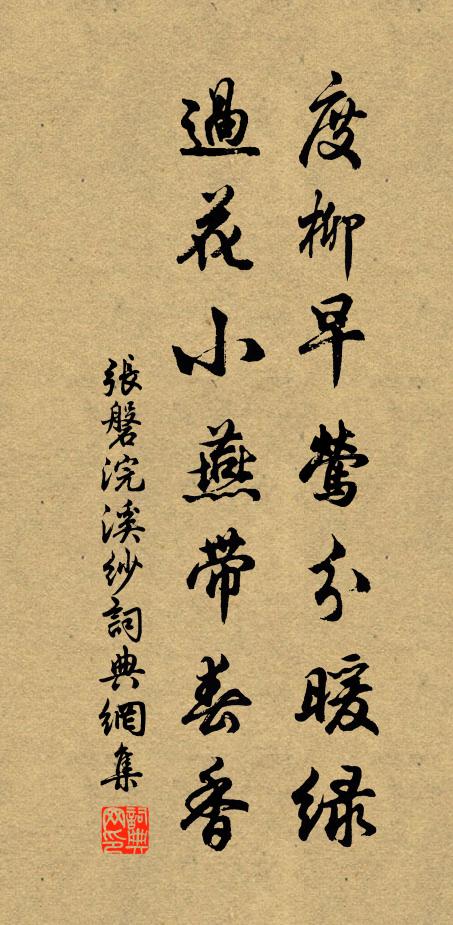 度柳早鶯分暖綠
過花小燕帶春香
張磐浣溪紗詞典網集
詞典網印